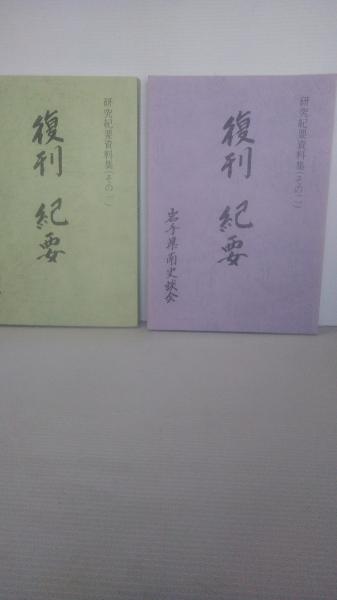 研究紀要資料集(その一)
復刊 紀要
研究紀要資料集(その二)
復刊 紀要
岩手県南史談会